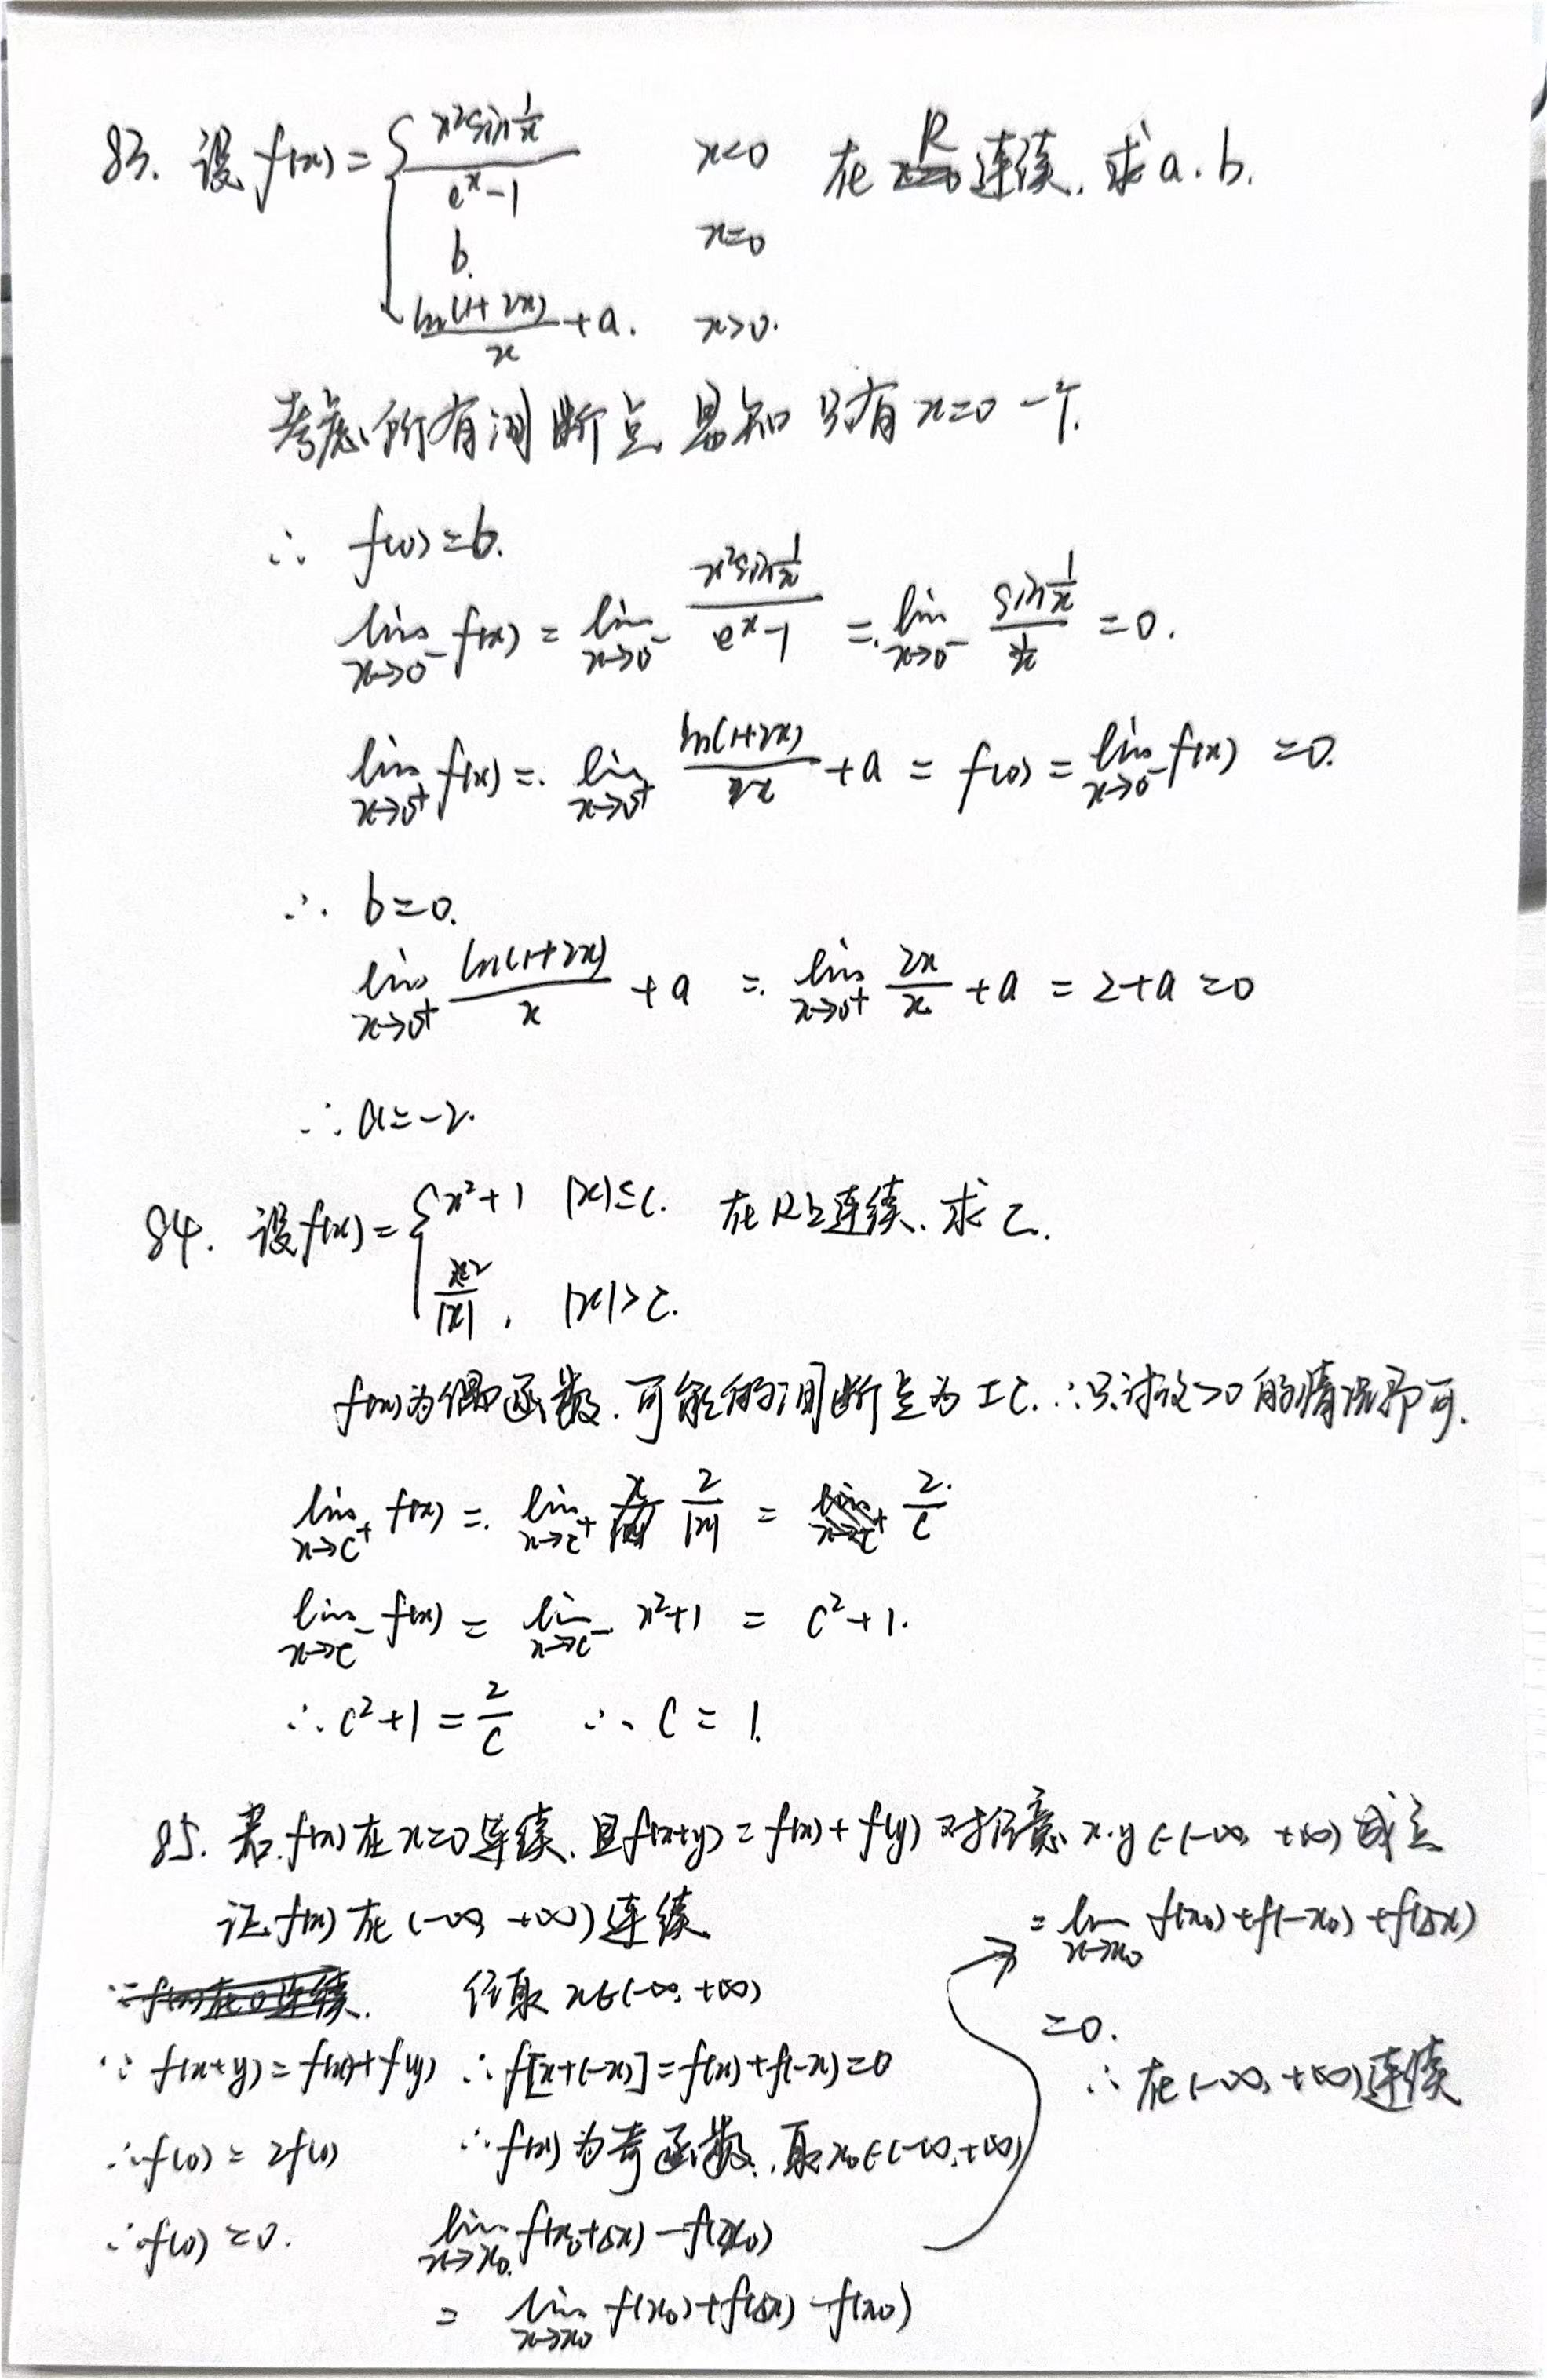 83. 设 f(x) = { x²sin(1/x) / (e^x - 1)   x<0   在 R 连续. 求 a. b.
b.   x=0
ln(1+2x)/x + a.   x>0.
考虑所有间断点 易知 只有 x=0 一个.
∴ f(0) = b.
lim_{x→0⁻} f(x) = lim_{x→0⁻} x²sin(1/x) / (e^x - 1) = lim_{x→0⁻} sin(1/x) / (1/x) = 0.
lim_{x→0⁺} f(x) = lim_{x→0⁺} ln(1+2x)/x + a = f(0) = lim_{x→0⁻} f(x) = 0.
∴ b = 0.
lim_{x→0⁺} ln(1+2x)/x + a = lim_{x→0⁺} 2x/x + a = 2+a = 0
∴ a = -2.
84. 设 f(x) = { x²+1   |x|≤c.   在R上连续. 求 c.
2/|x| ,   |x|>c.
f(x)为偶函数. 可能的间断点为 ±c. ∴只讨论>0的情况即可.
lim_{x→c⁺} f(x) = lim_{x→c⁺} 2/|x| = 2/c
lim_{x→c⁻} f(x) = lim_{x→c⁻} x²+1 = c²+1.
∴ c²+1 = 2/c   ∴ c = 1.
85. 若 f(x) 在 x=0 连续. 且 f(x+y) = f(x) + f(y) 对任意 x.y ∈ (-∞, +∞) 成立
证 f(x) 在 (-∞, +∞) 连续
∵ f(x)在0连续.
∵ f(x+y) = f(x)+f(y)
∴ f(0) = 2f(0)
∴ f(0) = 0.
任取 x∈(-∞, +∞)
∴ f[x+(-x)] = f(x)+f(-x) = 0
∴ f(x) 为奇函数. 取 x₀∈(-∞, +∞)
lim_{x→x₀} f(x₀+Δx) - f(x₀)
= lim_{x→x₀} f(x₀)+f(Δx) - f(x₀)
= lim_{x→x₀} f(x₀)+f(-x₀)+f(Δx)
= 0.
∴ 在 (-∞, +∞) 连续